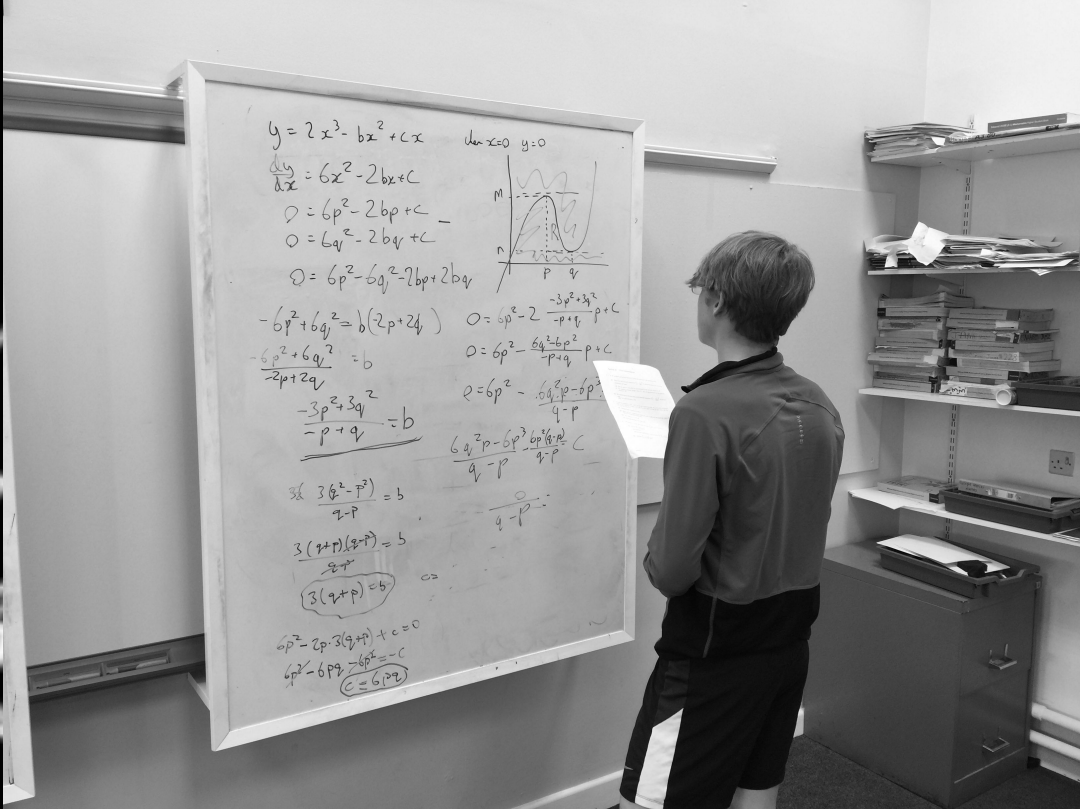 y = 2x³ - bx² + cx
dy/dx = 6x² - 2bx + c
0 = 6p² - 2bp + c
0 = 6q² - 2bq + c
0 = 6p² - 6q² - 2bp + 2bq
-6p² + 6q² = b(-2p + 2q)
-6p² + 6q² / -2p + 2q = b
-3p² + 3q² / -p + q = b
3(q² - p²) / q - p = b
3(q+p)(q-p) / q-p = b
3(q+p) = b
6p² - 2p·3(q+p) + c = 0
6p² - 6pq - 6p² = -c
c = 6pq
when x=0 y=0
M
n
R
p q
0 = 6p² - 2 -3p² + 3q² / -p + q p + c
0 = 6p² - 6q² - 6p² / -p + q p + c
0 = 6p² - 6q²p - 6p³ / q - p
6q²p - 6p³ / q - p - 6p²(q-p) / q - p = c
0 / q - p =
c=